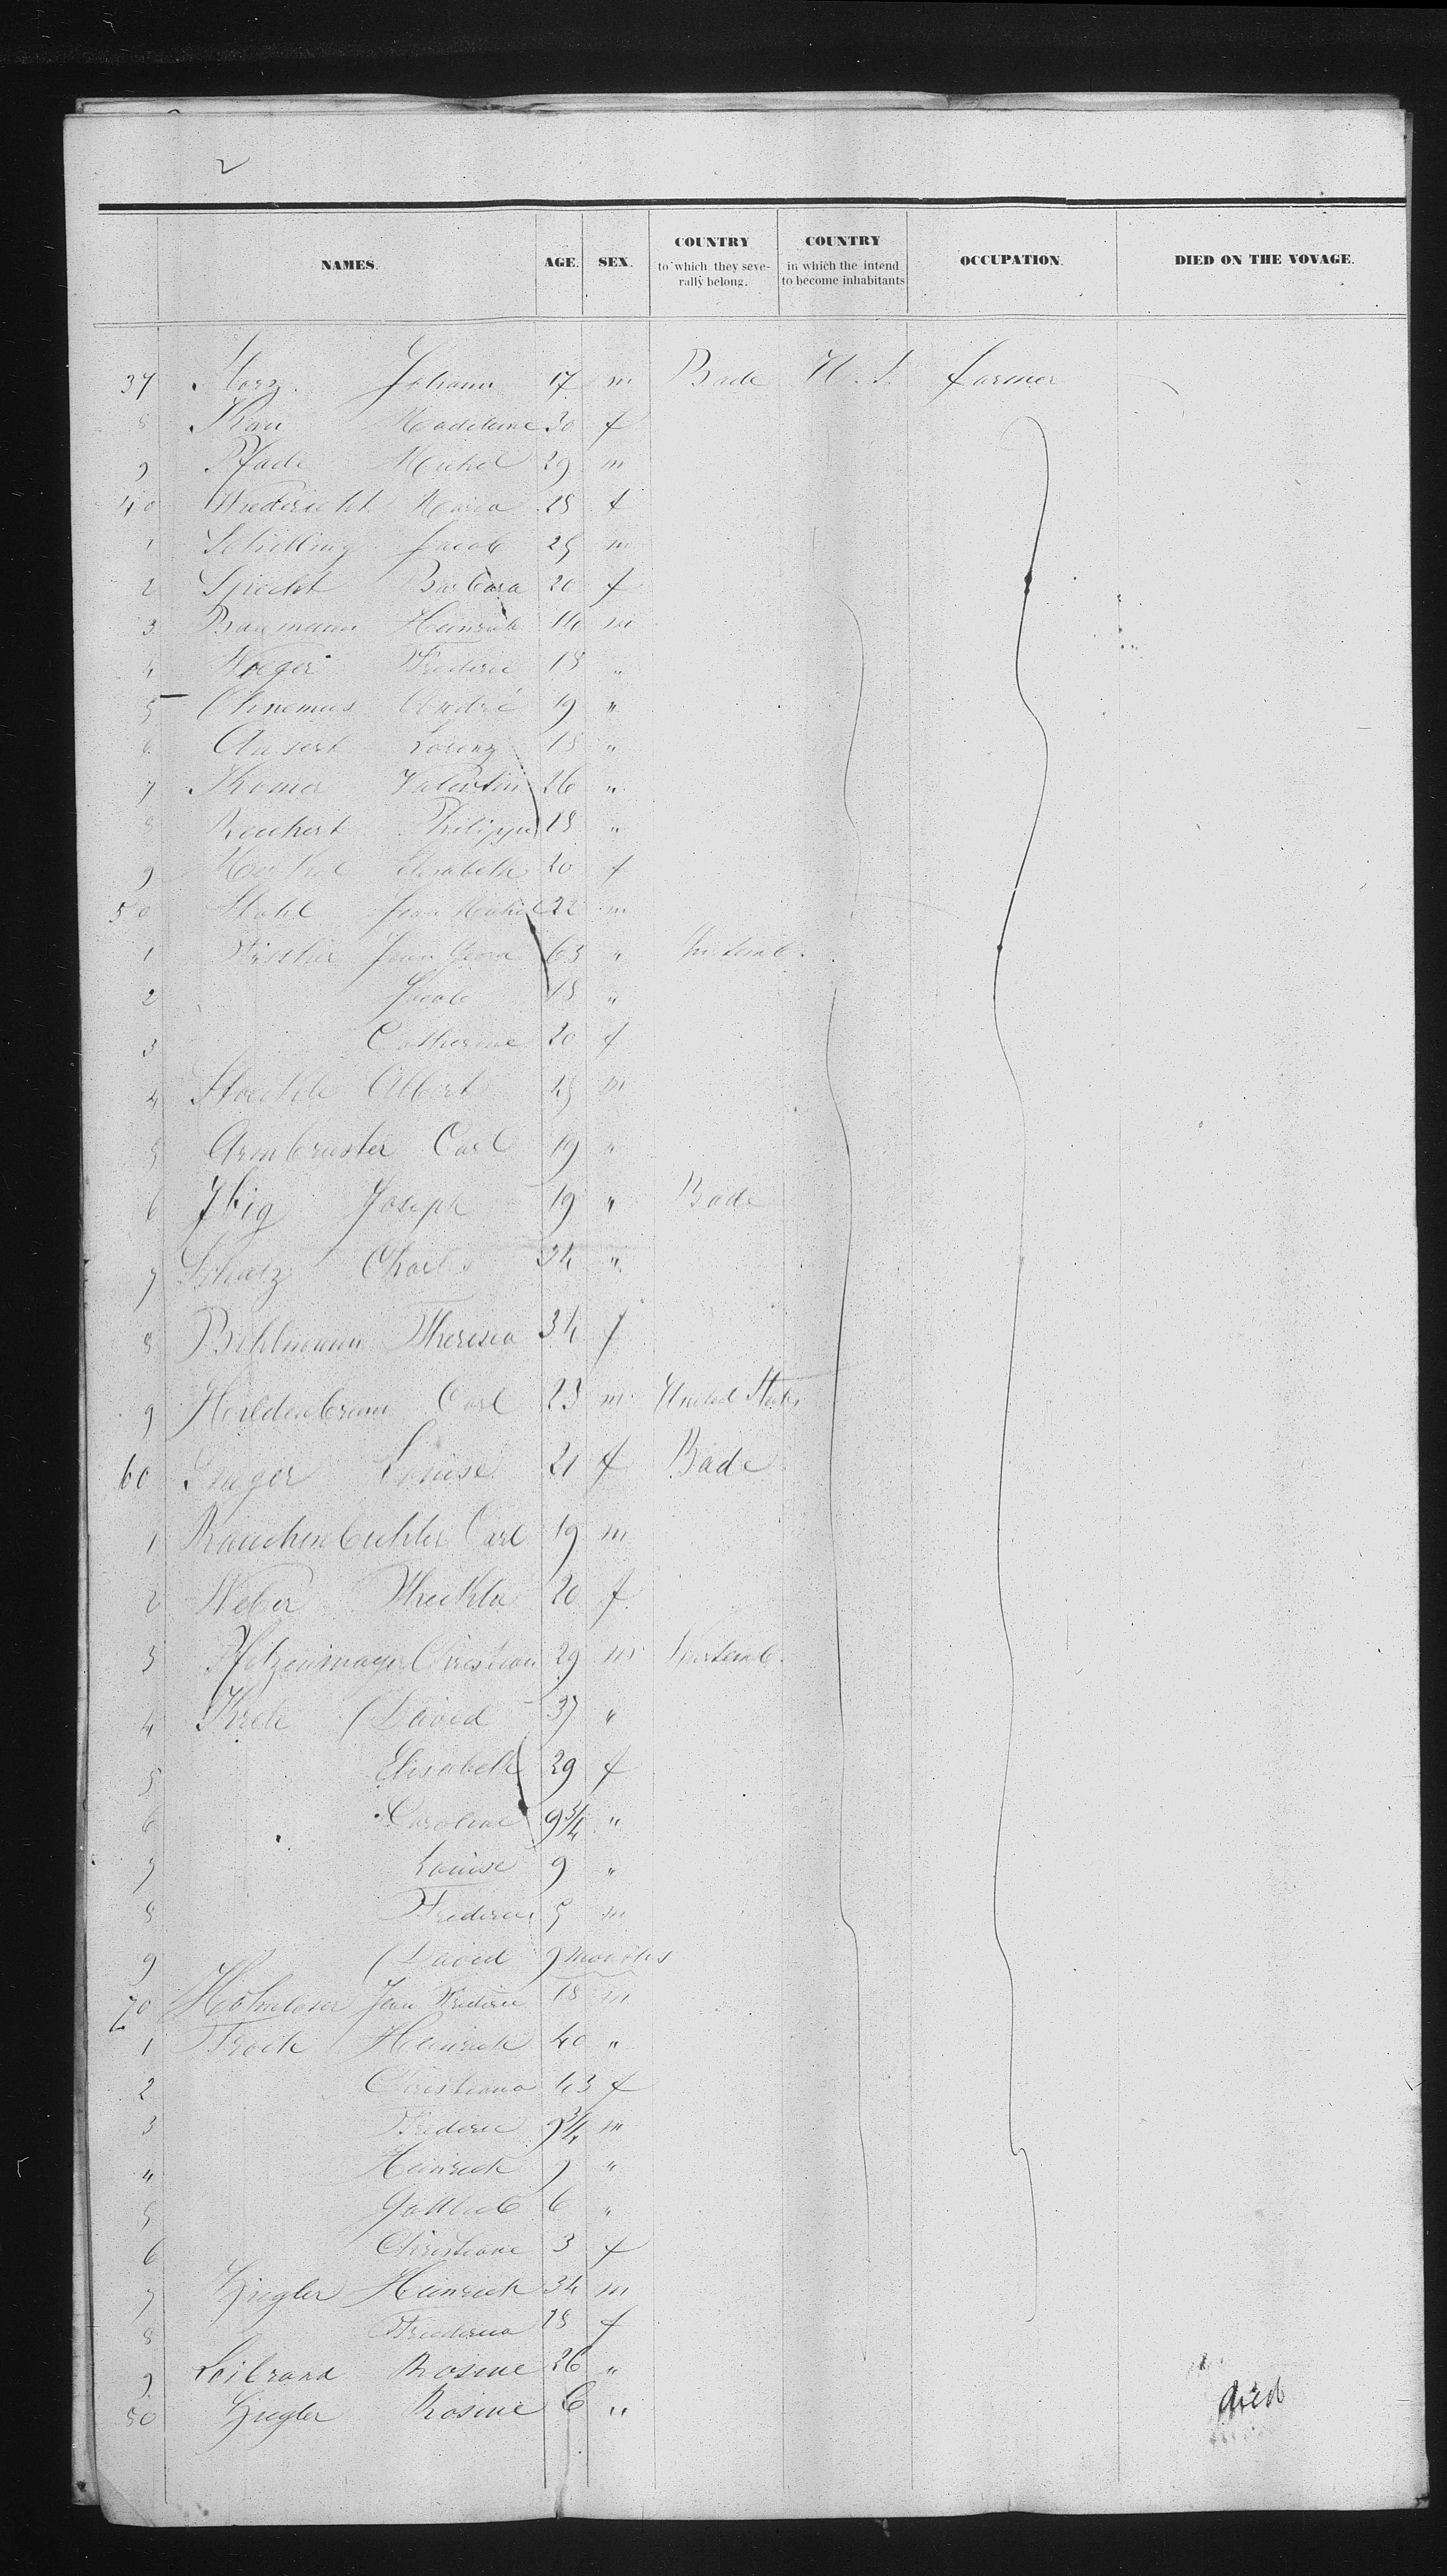 2
NAMES. AGE. SEX. COUNTRY to which they severally belong. COUNTRY in which the intend to become inhabitants OCCUPATION. DIED ON THE VOYAGE.
37 Johann 17 m Bade U. S. farmer
8 Rau Madeleine 30 f
9 Pfade Michel 29 m
40 Maria 28 f
1 Schilling Jacob 25 m
2 Specht Barbara 20 f
3 Baumann Heinrich 14 m
4 Frederic 18 "
5 Ohnemus André 19 "
6 Ansert Lorenz 18 "
7 Valentin 26 "
8 Reichert Philippe 18 "
9 Elisabeth 20 f
50 Stahl Jean Michel 22 m
1 Jean Georg 63 " Wurtemb.
2 Jacob 18 "
3 Catherine 20 f
4 Albert m
5 Armbruster Carl 19 "
6 Ibig Joseph 19 " Bade
7 Schatz Charles 34 "
8 Bihlmann Theresia 34 f
9 Heildenbrum Carl 23 m United States
60 Louise 21 f Bade
1 Rauchenbuhler Carl 19 m
2 Weber Theckla 20 f
3 Pfotzenmayer Christian 29 m Wurtemb.
4 David 37 "
5 Elisabeth 29 f
6 Caroline 9 3/4 "
7 Louise 9 "
8 Frederic 5 m
9 David 9 months
70 Jean Frederic 18 m
1 Frock Heinrich 40 "
2 Christiana 43 f
3 Frederic 9 3/4 m
4 Heinrich 9 "
5 Gottlieb 6 "
6 Christiane 3 f
7 Ziegler Heinrich 34 m
8 Frederica 28 f
9 Leibrand Rosine 26 "
80 Ziegler Rosine 6 " died